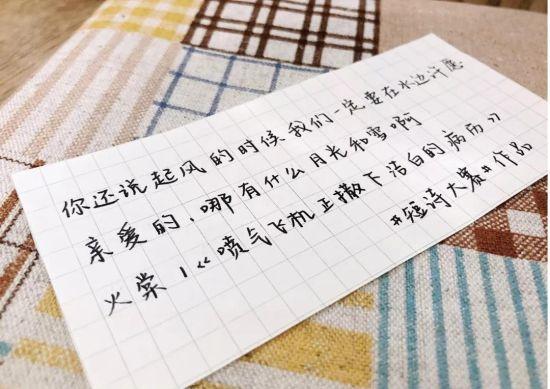 你还说起风的时候我们一定要在水边许愿
亲爱的，哪有什么月光和雪啊
火棠 |《喷气飞机正撒下洁白的病历》
#短诗大赛#作品